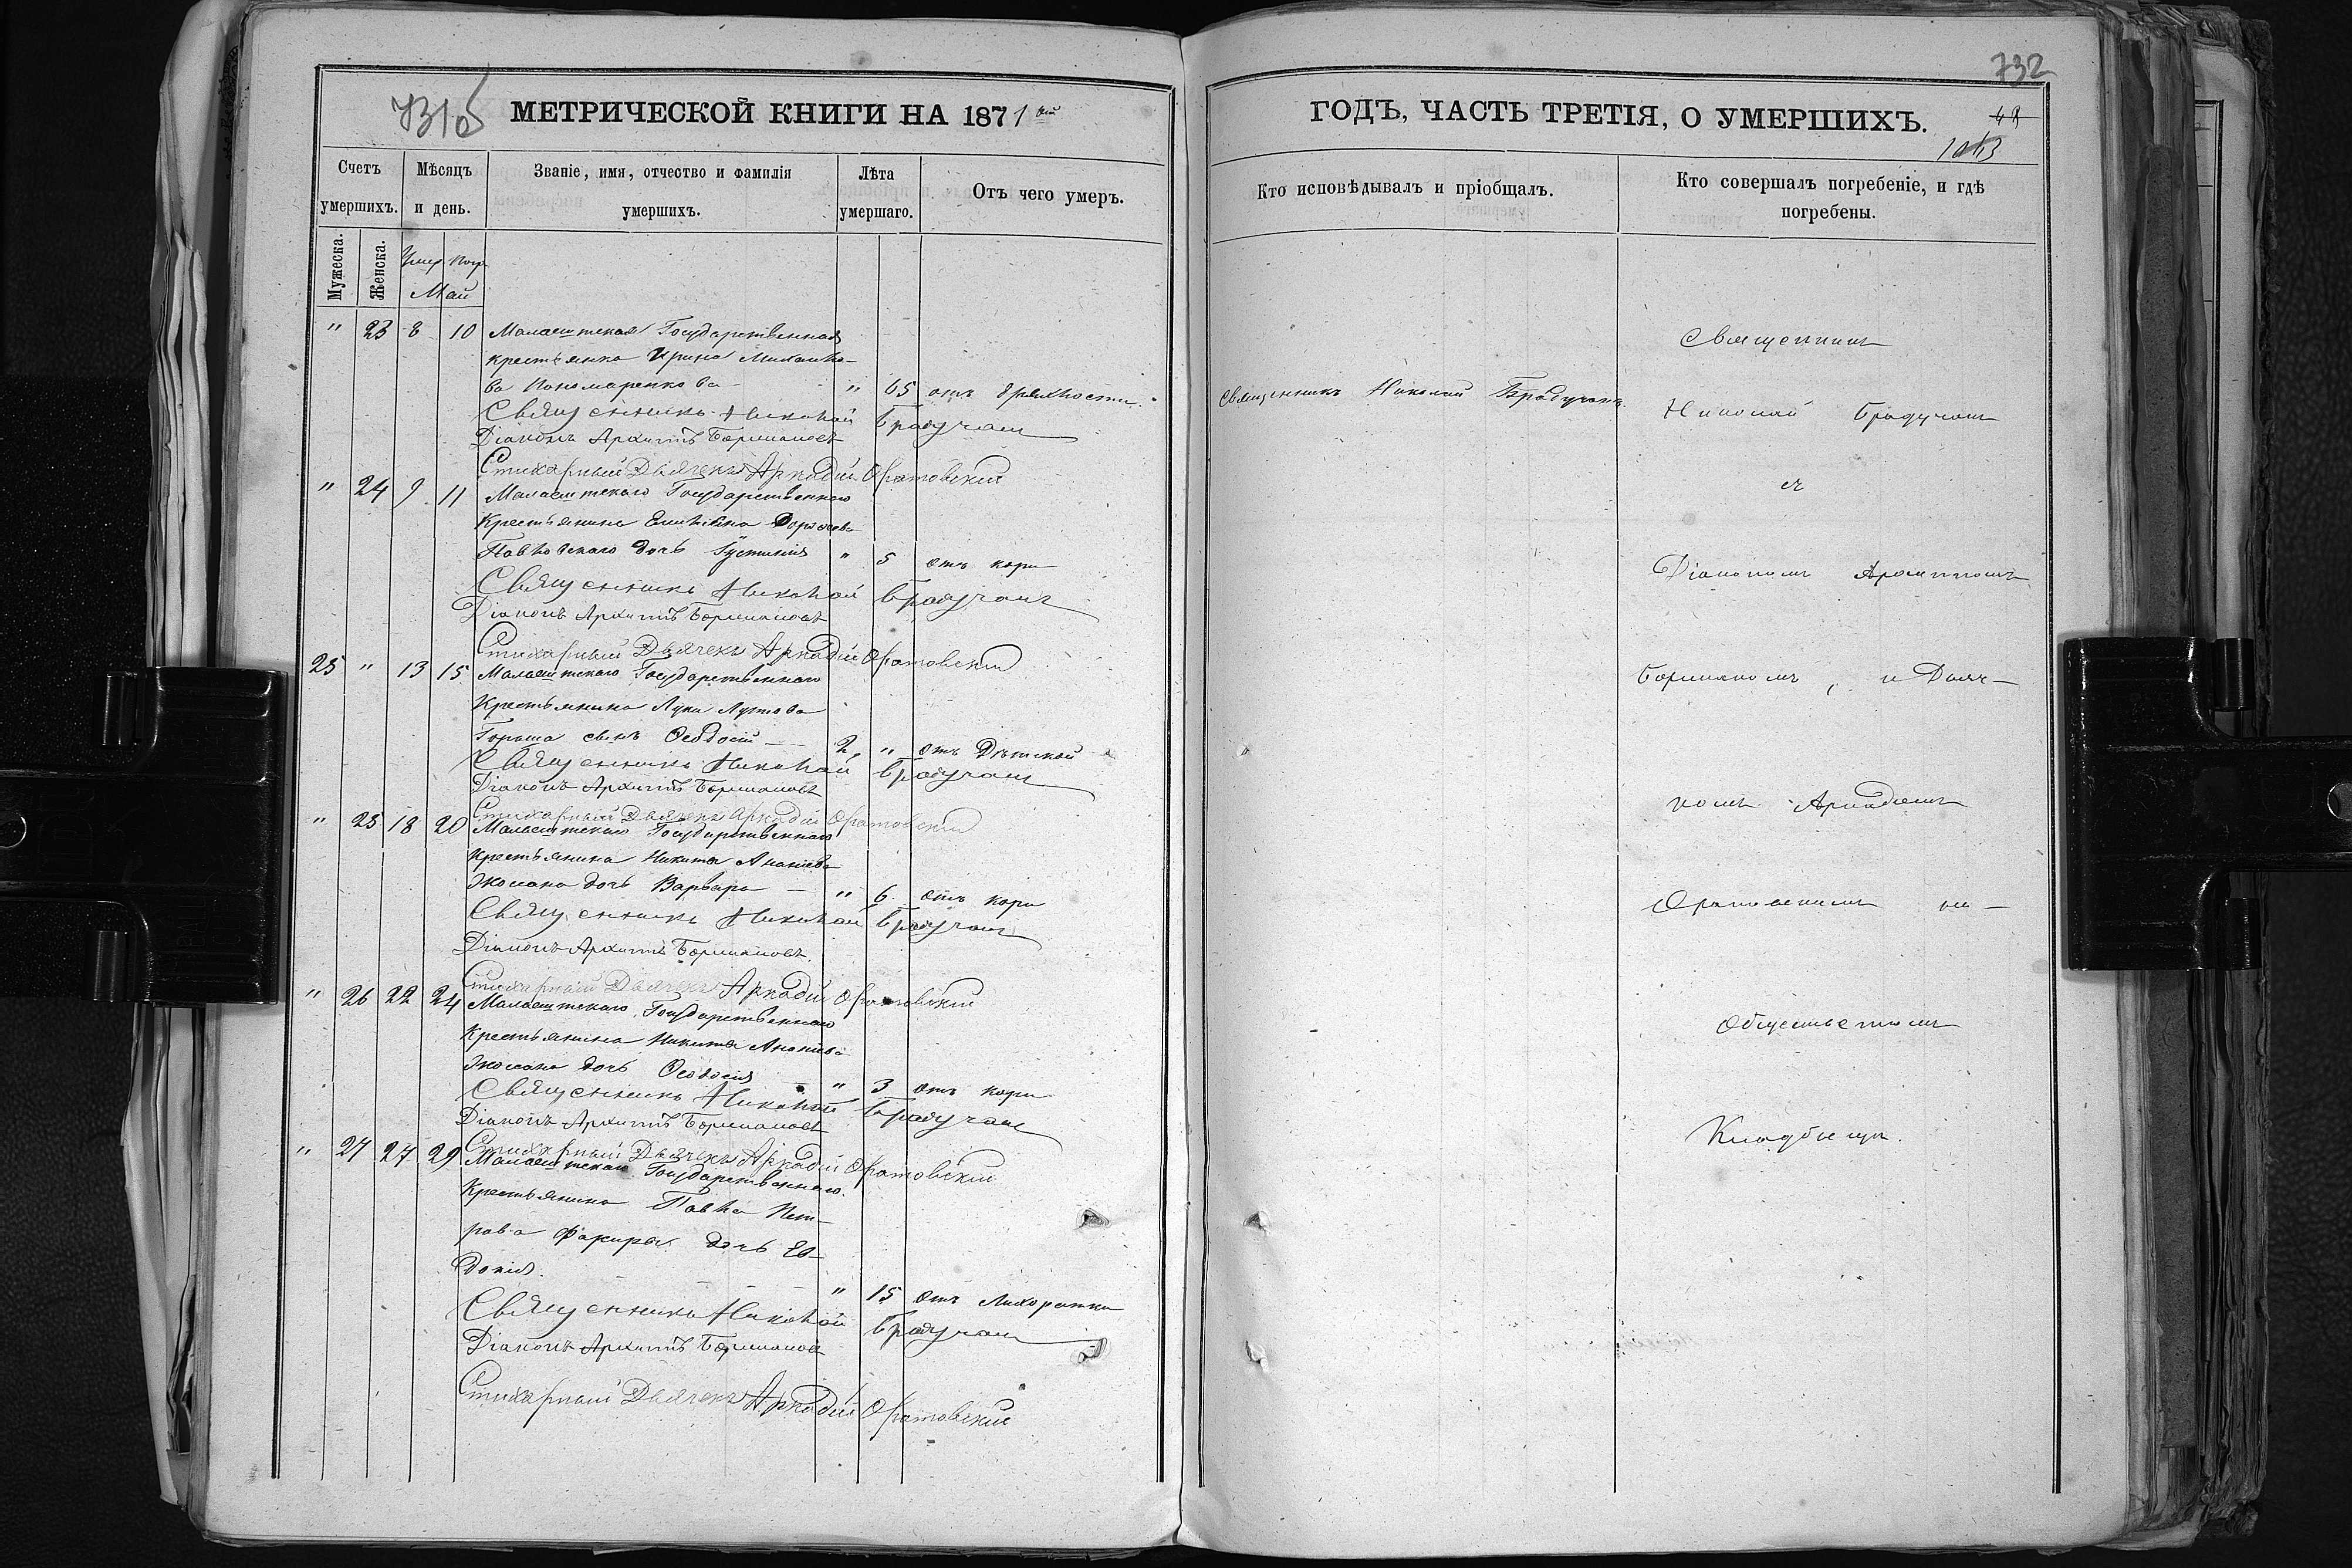 МЕТРИЧЕСКОЙ КНИГИ НА 1871 ой
Счетъ умершихъ.
Мѣсяцъ и день.
Званіе, имя, отчество и фамилія умершихъ.
Лѣта умершаго.
Отъ чего умеръ.
Мужеска.
Женска.
Умер. Погр.
Май
" 23 8 10 Малаештская Государственная
крестьянка Ирина Михаило-
ва Пономаренкова " 65 отъ дряхлости.
Священникъ Николай Брадучанъ
Діаконъ Архиппъ
Стихарный Дьячекъ Аркадій Оратовскій
" 24 9 11 Малаештскаго Государственнаго
Крестьянина
Павловскаго дочь Іустинія " 5 отъ кори
Священникъ Николай Брадучанъ
Діаконъ Архиппъ
Стихарный Дьячекъ Аркадій Оратовскій
25 " 13 15 Малаештскаго Государственнаго
Крестьянина Луки
сынъ Ѳеодосій 2 " отъ Дѣтской
Священникъ Николай Брадучанъ
Діаконъ Архиппъ
Стихарный Дьячекъ Аркадій Оратовскій
" 25 18 20 Малаештскаго Государственнаго
Крестьянина Никиты Ананіева
дочь Варвара " 6 отъ кори
Священникъ Николай Брадучанъ
Діаконъ Архиппъ
Стихарный Дьячекъ Аркадій Оратовскій
" 26 22 24 Малаештскаго Государственнаго
Крестьянина Никиты Ананіева
дочь Ѳеодосія " 3 отъ кори
Священникъ Николай Брадучанъ
Діаконъ Архиппъ
Стихарный Дьячекъ Аркадій Оратовскій
" 27 27 29 Малаештскаго Государственнаго
Крестьянина Павла Пет-
рова Факиры дочь Ев-
докія. " 15 отъ Лихорадки
Священникъ Николай Брадучанъ
Діаконъ Архиппъ
Стихарный Дьячекъ Аркадій Оратовскій
732
ГОДЪ, ЧАСТЬ ТРЕТІЯ, О УМЕРШИХЪ.
Кто исповѣдывалъ и пріобщалъ.
Кто совершалъ погребеніе, и гдѣ
погребены.
Священникъ Николай Брадучанъ.
Священникъ
Николай Брадучанъ
съ
Діакономъ Архиппомъ
и Дьяч-
комъ Аркадіемъ
Оратовскимъ на
Общественномъ
Кладбищѣ.